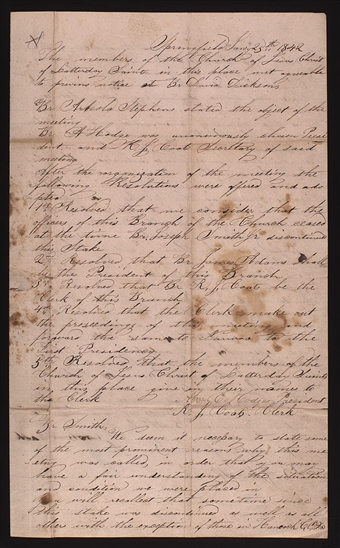 Springfield Jany 25th 1842
The members of the Church of Jesus Christ
of Latterday Saints in this place met agreeable
to previous notice at Br David Dickson's
Br Arnold Stephens stated the object of the
meeting
Br A Hodge was unanimously chosen Presi
dent and R. J. Coats Secretary of said
meeting
After the organization of the meeting the
following Resolutions were offered and ad
pted
1st Resolved that we consider that the
affairs of this Branch of the Church ceased
at the time Br Joseph Smith Jr discontinued
this Stake
2nd Resolved that Br James Adams shall
be the President of this Branch
3rd Resolved that Br R. J. Coats be the
Clerk of this Branch
4th Resolved that the Clerk make out
the proceedings of this meeting and
forward the same to Nauvoo to the
first Presidency
5th Resolved that the members of the
Church of Jesus Christ of Latterday Saints
in this place give in their names to
the Clerk
Hodge President
R. J. Coats Clerk
Br Smith
We deem it necessary to state some
of the most prominent reasons why this me
eting was called, in order that you may
have a fair understanding of the situation
and condition we were placed in
you will recollect that sometime since
this stake was discontinued as well as all
others with the exception of those in Hancock Co